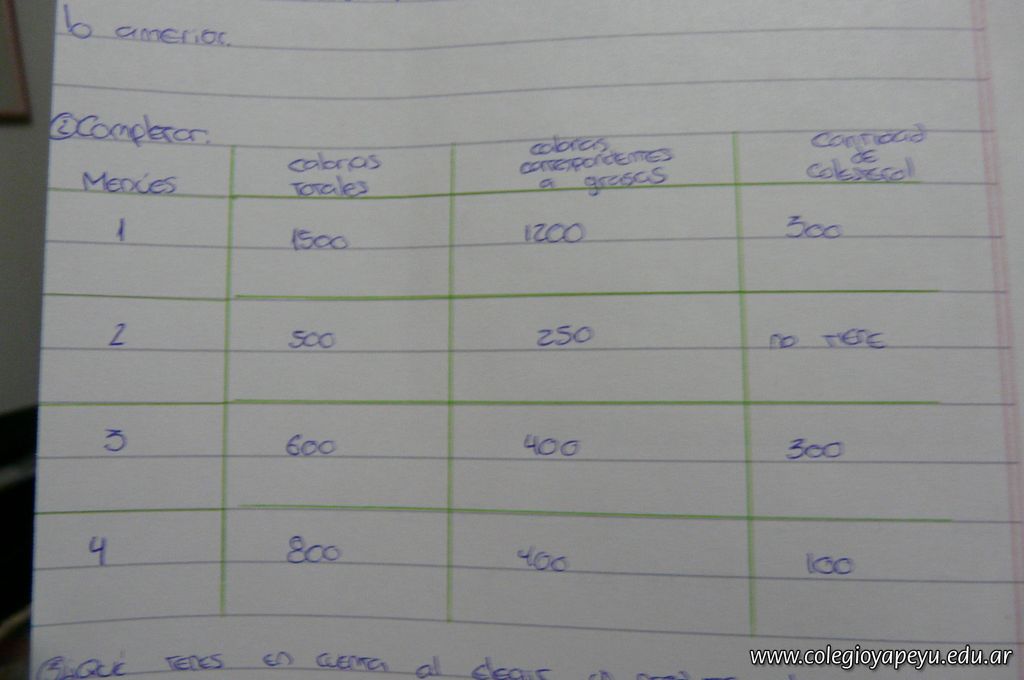 lo anterior.
② Completar.
Menúes
calorías totales
calorías correspondientes a grasas
Cantidad de Colesterol
1 1500 1200 300
2 500 250 no tiene
3 600 400 300
4 800 400 100
③ ¿Qué tenes en cuenta al elegir
www.colegioyapeyu.edu.ar